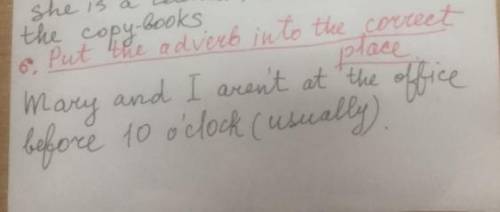 she is a
the copy-books
6. Put the adverb into the correct
place
Mary and I aren't at the office
before 10 o'clock (usually).